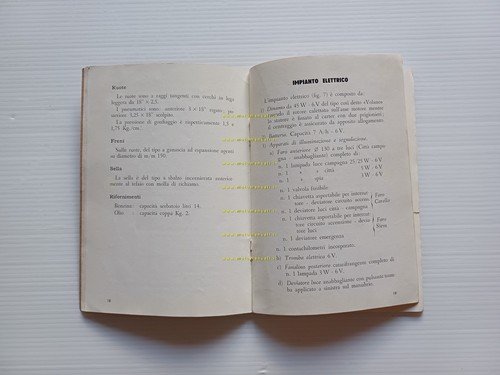 Ruote
Le ruote sono a raggi tangenti con cerchi in lega
leggera da 18" × 2,5.
I pneumatici sono: anteriore 3 × 18" rigato; po-
steriore 3,25 × 18" scolpito.
La pressione di gonfiaggio è rispettivamente 1,5 e
1,75 Kg./cm.
Freni
Sulle ruote, del tipo a ganascia ad espansione agenti
su diametro di m/m 150.
Sella
La sella è del tipo a sbalzo incernierata anterior-
mente al telaio con molla di richiamo.
Rifornimenti
Benzina: capacità serbatoio litri 14.
Olio: capacità coppa Kg. 2.
18
IMPIANTO ELETTRICO
L'impianto elettrico (fig. 7) è composto da:
Dinamo da 45 W - 6 V del tipo così detto «Volano»
ruotante di
lo statore è fissato al carter con due prigionieri;
il centraggio è assicurato da apposito allogamento.
Batteria. Capacità 7 A/h - 6 V.
Apparati di illuminazione e segnalazione.
a) Faro anteriore Ø 130 a tre luci (Città campa-
gna anabbagliante) completo di:
n. 1 lampada luce campagna 25/25 W - 6 V
n. 1 » » città 3 W - 6 V
n. 1 » spia 3 W - 6 V
n. 1 valvola fusibile
n. 1 chiavetta asportabile per interrut-
tore - deviatore circuito accen-
n. 1 deviatore luci città - campagna
n. 1 chiavetta asportabile per interrut-
tore circuito accensione - devia-
tore luci
n. 1 deviatore emergenza
Faro
Carello
Faro
Siem
n. 1 contachilometri incorporato.
b) Tromba elettrica 6 V.
c) Fanalino posteriore catarifrangente completo di
n. 1 lampada 3 W - 6 V.
d) Deviatore luce anabbagliante con pulsante trom-
ba applicato a sinistra sul manubrio.
19